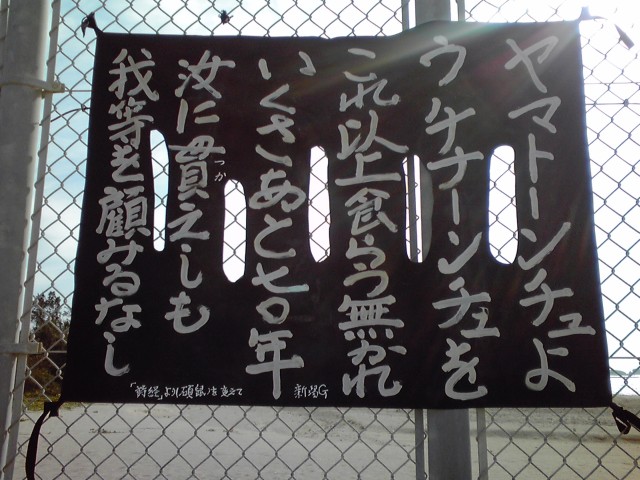 ヤマトーンチュよ
ウチナーンチュを
これ以上食らう無かれ
いくさあと七〇年
汝に貫えしも
つか
我等を顧みるなし
「詩経」より碩鼠を変えて
新潟G